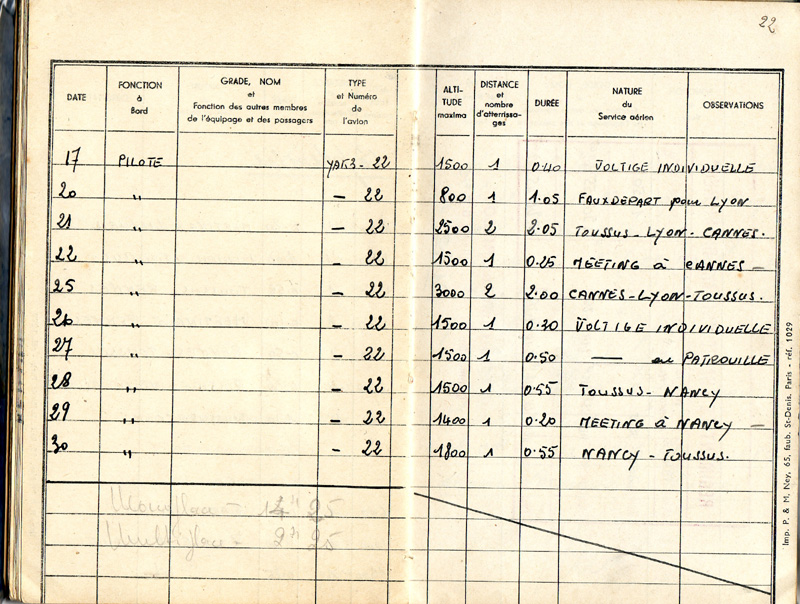 22
DATE FONCTION à Bord GRADE, NOM et Fonction des autres membres de l'équipage et des passagers TYPE et Numéro de l'avion ALTITUDE maxima DISTANCE et nombre d'atterrissages DURÉE NATURE du Service aérien OBSERVATIONS
17 PILOTE YAK3 - 22 1500 1 0.40 VOLTIGE INDIVIDUELLE
20 " — 22 800 1 1.05 FAUX DÉPART pour LYON
21 " — 22 2500 2 2.05 TOUSSUS - LYON - CANNES.
22 " — 22 1500 1 0.25 MEETING à CANNES —
25 " — 22 3000 2 2.00 CANNES - LYON - TOUSSUS.
26 " — 22 1500 1 0.30 VOLTIGE INDIVIDUELLE
27 " — 22 1500 1 0.50 —— en PATROUILLE
28 " — 22 1500 1 0.55 TOUSSUS - NANCY
29 " — 22 1400 1 0.20 MEETING à NANCY —
30 " — 22 1800 1 0.55 NANCY - TOUSSUS.
Monoplace — 14h 25
Multiplace — 2h 25
Imp. P. & M. Ney, 65, faub. St-Denis, Paris - réf. 1029